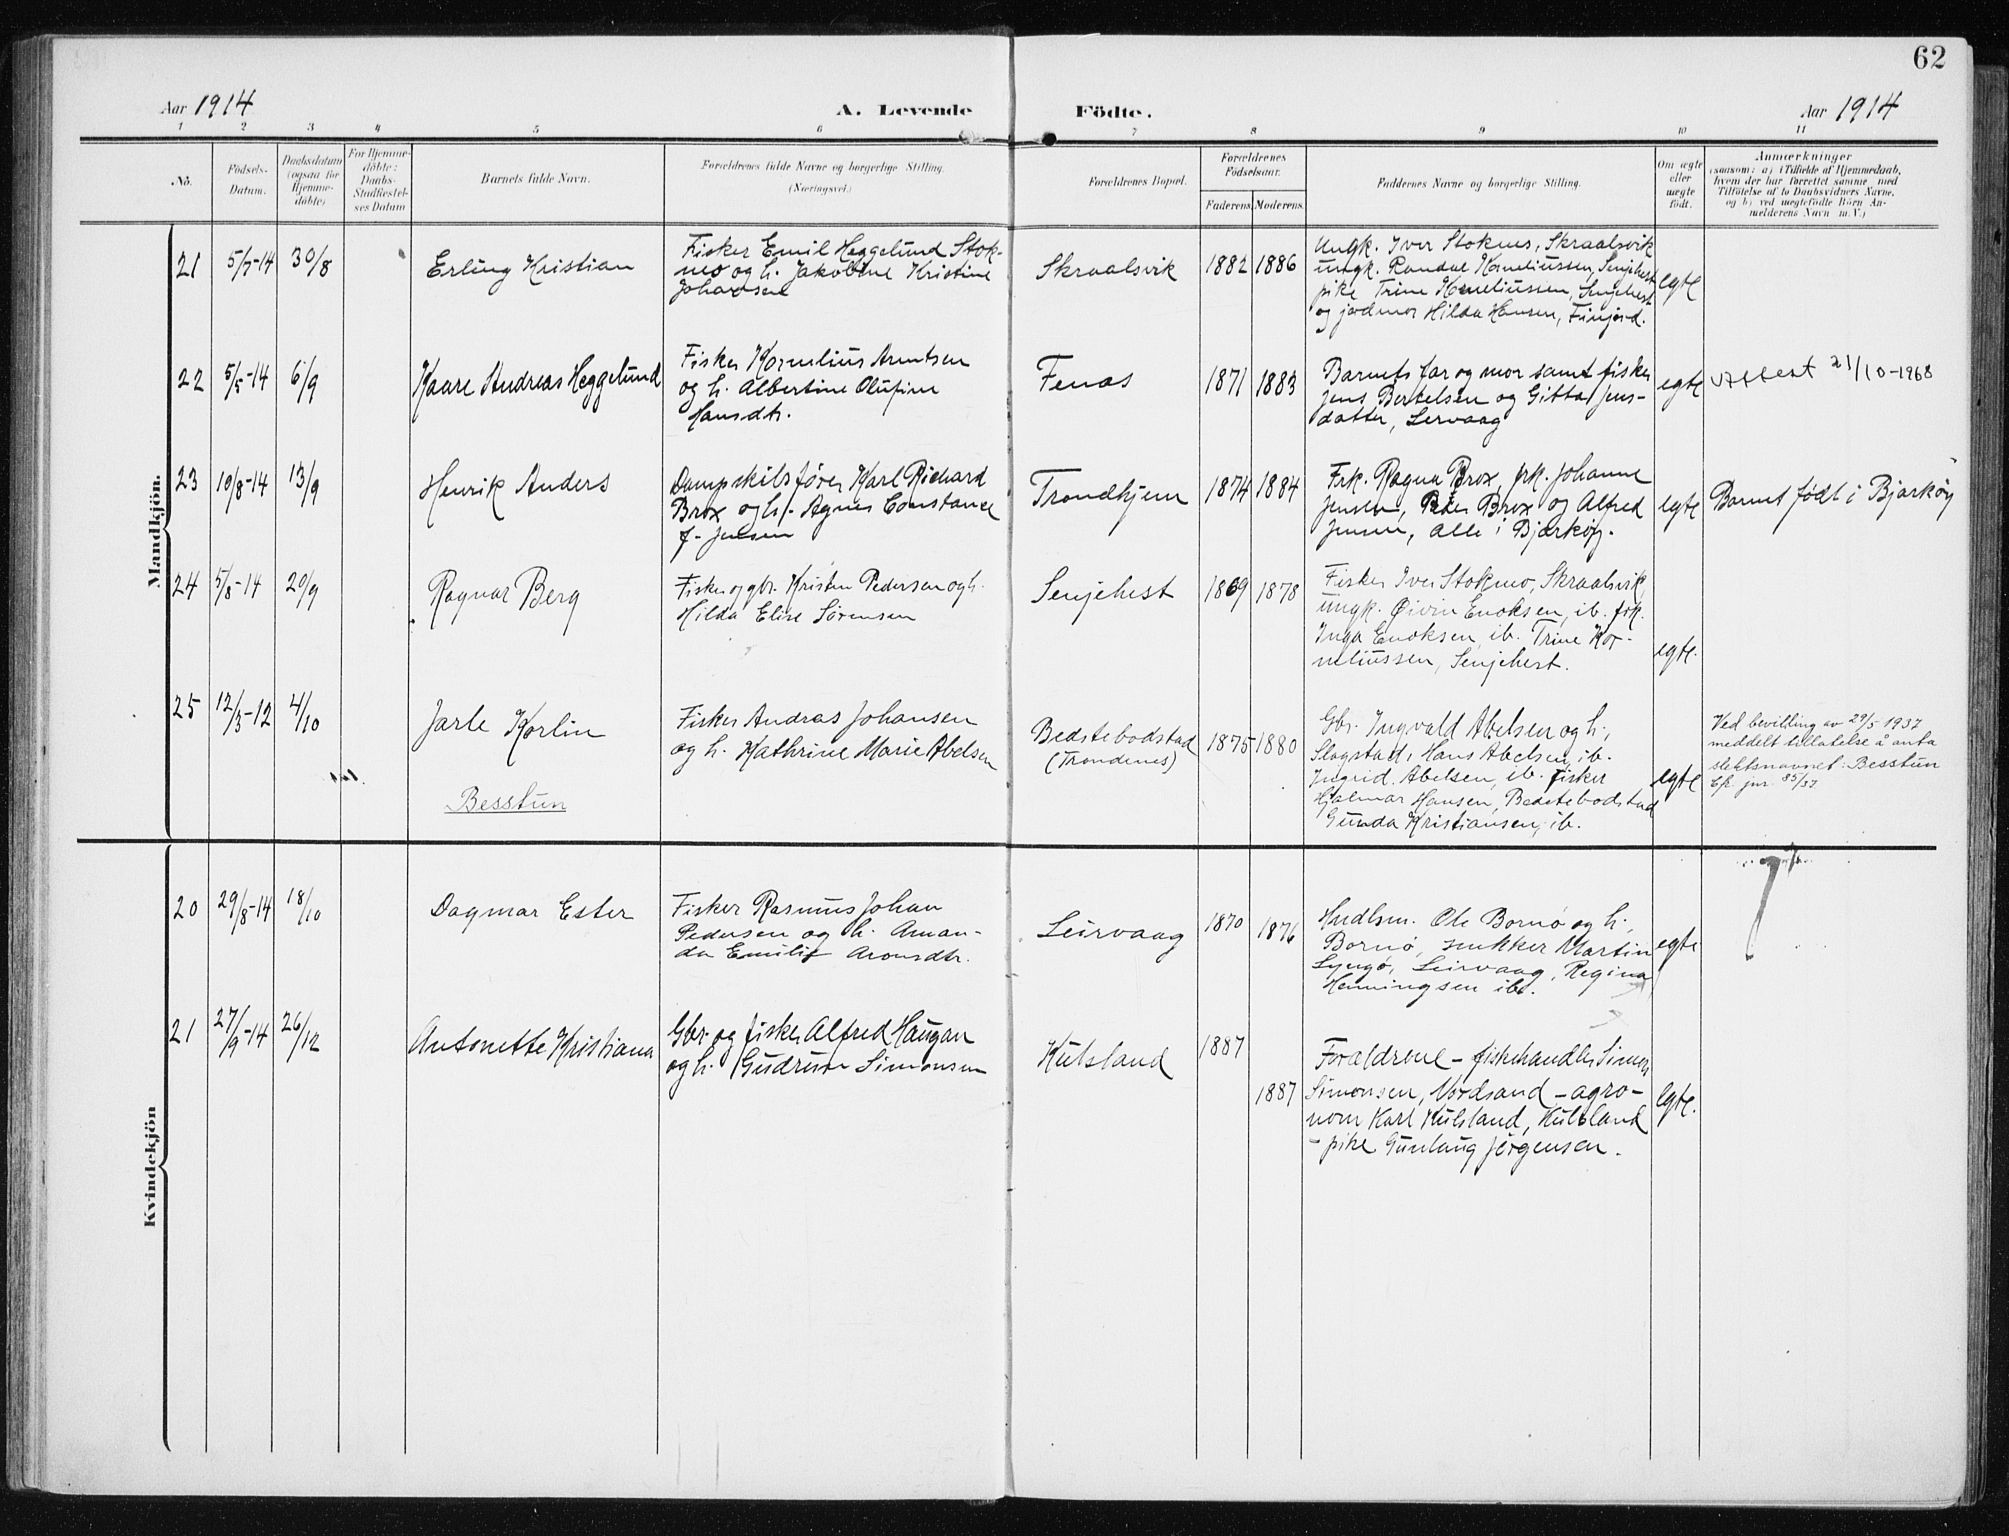 62
Aar 1914
A. Levende Födte.
Aar 1914
1 2 3 4 5 6 7 8 9 10 11
No.
Födsels-
Datum.
Daabsdatum
(ogsaa for
Hjemme-
döbte)
For Hjemme-
döbte:
Daabs-
Stadfæstel-
ses Datum
Barnets fulde Navn.
Forældrenes fulde Navne og borgerlige Stilling.
(Næringsvei.)
Forældrenes Bopæl.
Forældrenes
Födselsaar.
Faderens. Moderens.
Faddernes Navne og borgerlige Stilling.
Om ægte
eller
uægte
født.
Anmærkninger
(saasom: a) i Tilfælde af Hjemmedaab,
hvem der har forrettet samme med
Tilföielse af to Daabsvidners Navne,
og b) ved uægtefödte Börn An-
melderens Navn m. V.)
Mandkjön.
21
5/7-14
30/8
Erling Kristian
Fisker Emil Heggelund Stok-
mo og h. Jakobine Kristine
Johansen
Skraalsvik
1882
1886
Ungk. Iver Stokmo, Skraalsvik
ungk. Randal Korneliussen, Senjehest
pike Trine Korneliussen, Senjehest
og jordmor Hilda Hansen, Finjord.
egte
22
5/5-14
6/9
Kaare Andreas Heggelund
Fisker Kornelius Arntsen
og h. Albertine Olufine
Hansdtr.
Fenes
1871
1883
Barnets far og mor samt fisker
Jens Bertelsen og Gitta Jens-
datter, Lervaag
egte
Attest 21/10-1968
23
10/8-14
13/9
Henrik Anders
Dampskibsfører Karl Richard
Brox og h. Agnes Constance
f. Jensen
Trondhjem
1874
1884
Frk. Ragna Brox, frk. Johanne
Jensen, Peder Brox og Alfred
Jensen, alle i Bjarkøy.
egte
Barnet født i Bjarkøy
24
5/8-14
20/9
Ragnar Berg
Fisker og gbr. Kristen Pedersen og h.
Hilda Elise Sørensen
Senjehest
1869
1878
Fisker Iver Stokmo, Skraalsvik,
ungk. Øivin Enoksen, ib. frk.
Inga Enoksen, ib. Trine Kor-
neliussen, Senjehest.
egte.
25
12/3-12
4/10
Jarle Korlin
Besstun
Fisker Andreas Johansen
og h. Kathrine Marie Abelsen
Bedstebodstad
(Trondenes)
1875
1880
Gbr. Ingvald Abelsen og h.,
Slagstad, Hans Abelsen, ib.
Ingrid Abelsen, ib. fisker
Hjalmar Hansen, Bedstebodstad
Gunda Kristiansen, ib.
egte
Ved bevilling av 29/5 1937
meddelt tillatelse å anta
slektsnavnet: Besstun
Cfr. jnr. 85/37
Kvindekjön
20
29/8-14
18/10
Dagmar Ester
Fisker Rasmus Johan
Pedersen og h. Aman-
da Emilie Aronsdtr.
Leirvaag
1870
1876
Hndlsm. Ole Bornø og h.,
Bornø, snekker Martin
Lyngø, Leirvaag, Regina
Henningsen ib.
egte
21
27/9-14
26/12
Antonette Kristiana
Gbr. og fisker Alfred Haugan
og h. Gudrun Simonsen
Kulsland
1887
1887
Forældrene - fiskehandler Simon
Simonsen, Nordsand - agro-
nom Karl Kulsland, Kulsland
- pike Gunlaug Jørgensen.
egte.